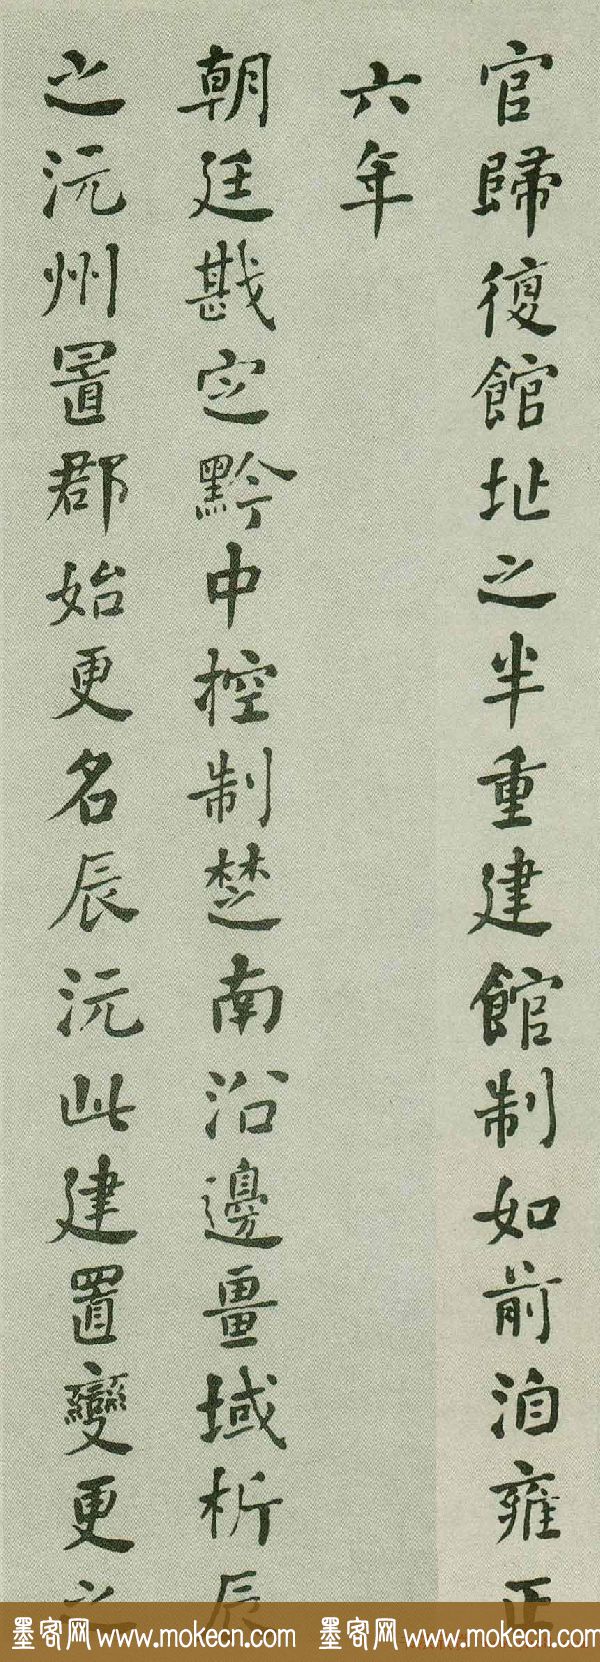 官歸復館址之半重建館制如前洎雍正
六年
朝廷戡定黔中控制楚南沿邊畺域析辰
之沅州置郡始更名辰沅此建置變更之
墨客网 www.mokecn.com 墨客网 www.mokecn.com